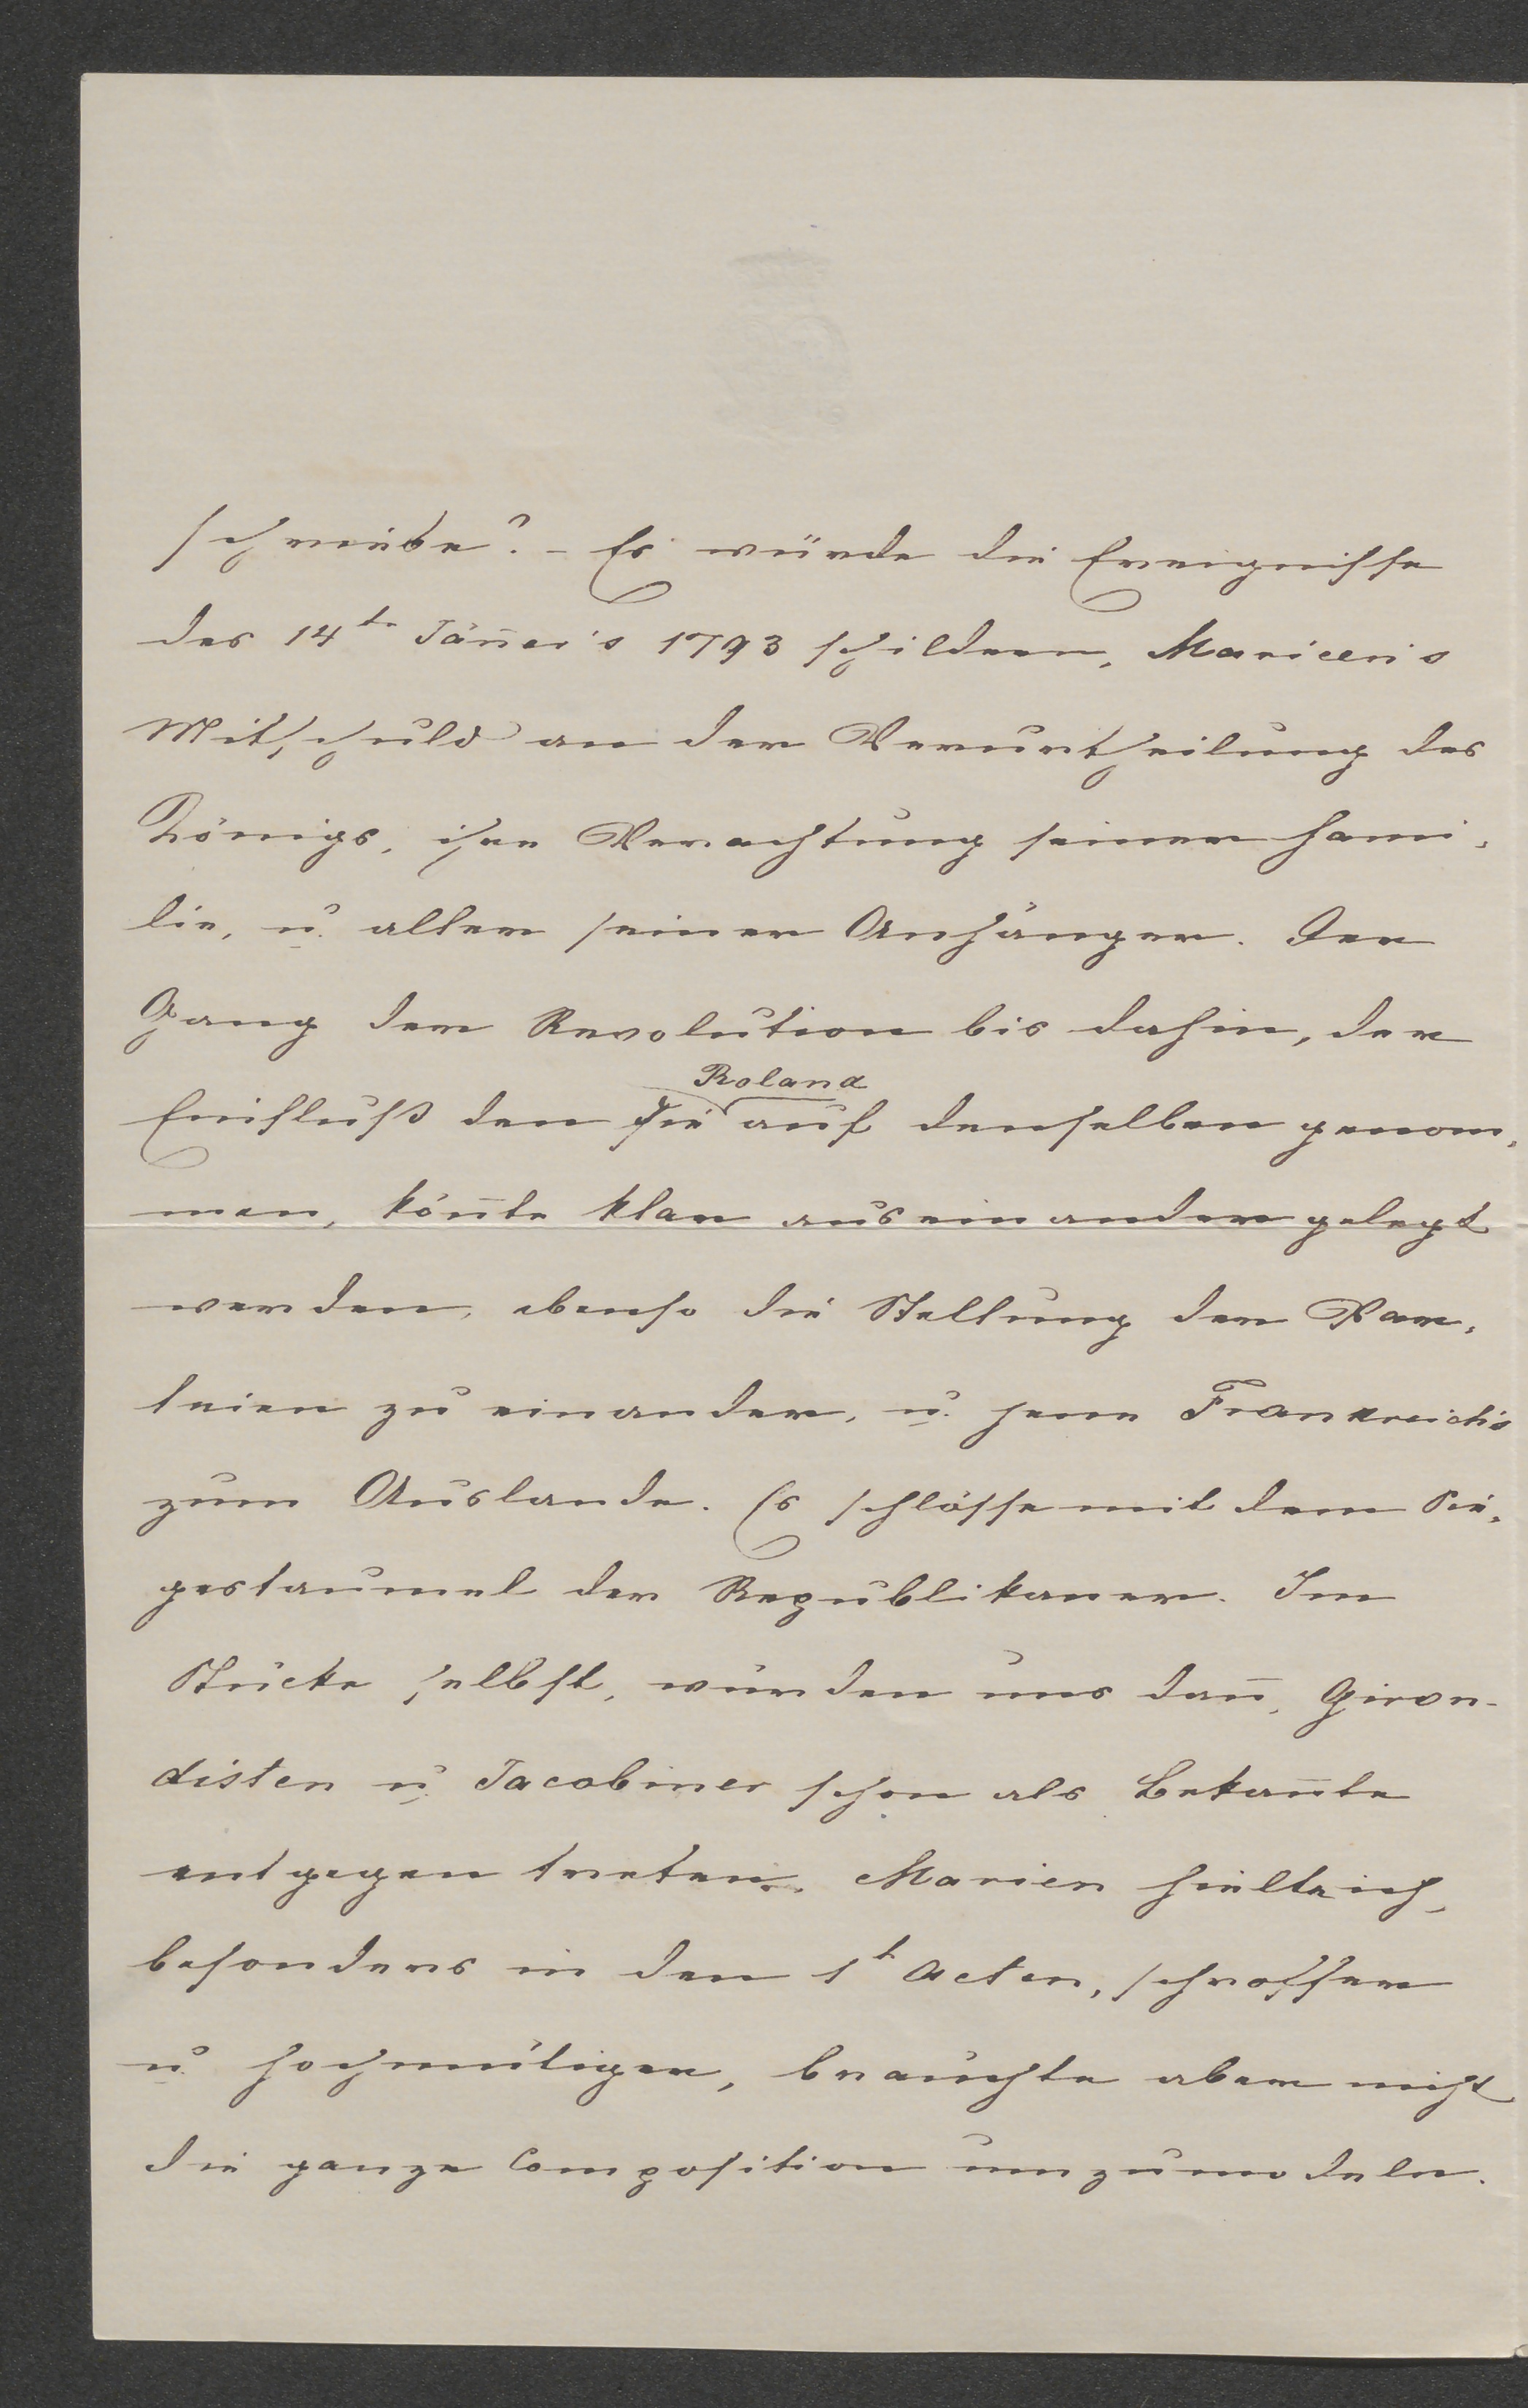 schreibe? – Es würde die Ereignisse
des 14<sup>te</sup> Jäñer's 1793 schildern, Mariens
Mitschuld an der Verurtheilung des
Königs, ihre Verachtung seiner Fami-
lie, u. aller seiner Anhänger. Der
Gang der Revolution bis dahin, der
Roland
Einfluß den die auf denselben genom-
men, köñte klar auseinandergelegt
werden, ebenso die Stellung der Par-
teien zu einander, u. jene Frankreich's
zum Auslande. Es schlösse mit dem Sie-
gestaumel der Republikaner. Im
Stücke selbst, würden uns dañ, Giron-
disten u. Jacobiner schon als Bekañte
entgegen treten. Marien hielte ich,
besonders in den 1<sup>t</sup> Acten, schroffer
u. hochmütiger, brauchte aber nicht
die ganze Composition umzumodeln.